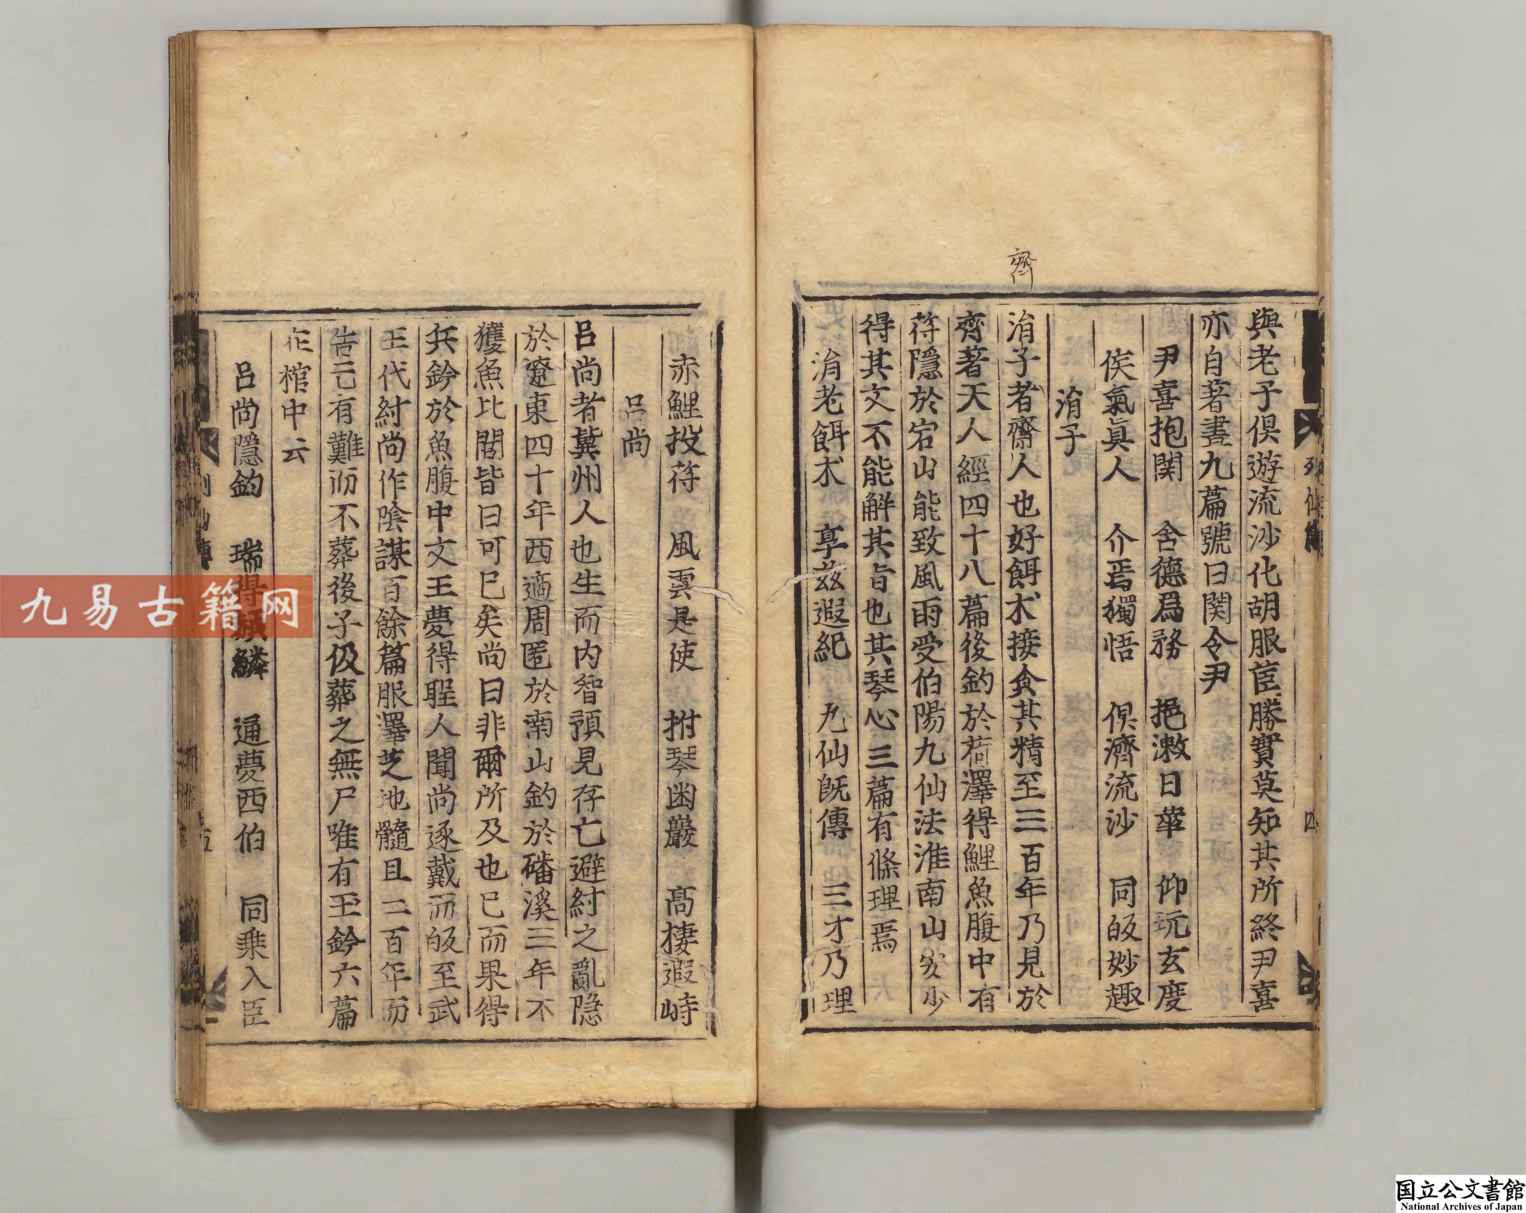 齊
與老子俱遊流沙化胡服苣勝實莫知其所終尹喜
亦自著書九篇號曰関令尹
尹喜抱関 含德爲務 挹漱日華 仰玩玄度
侯氣眞人 介焉獨悟 俱濟流沙 同皈妙趣
涓子
涓子者齋人也好餌朮接食其精至三百年乃見於
齊著天人經四十八篇後釣於荷澤得鯉魚腹中有
苻隱於宕山能致風雨受伯陽九仙法淮南山安少
得其文不能解其旨也其琴心三篇有條理焉
涓老餌朮 享茲遐紀 九仙旣傳 三才乃理
赤鯉投苻 風雲是使 拊琴幽巖 高棲遐峙
呂尚
呂尚者冀州人也生而内智預見存亡避紂之亂隐
於遼東四十年西適周匿於南山釣於磻溪三年不
獲魚比閭皆曰可已矣尚曰非爾所及也已而果得
兵鈐於魚腹中文王夢得聖人聞尚遂載而皈至武
王代紂尚作陰謀百餘篇服澤芝地髓且二百年而
告亡有難而不葬後子伋葬之無尸唯有玉鈐六篇
在棺中云
呂尚隱釣 瑞得 鱗 通夢西伯 同乘入臣
列仙傳
四
五
九易古籍网
国立公文書館
National Archives of Japan